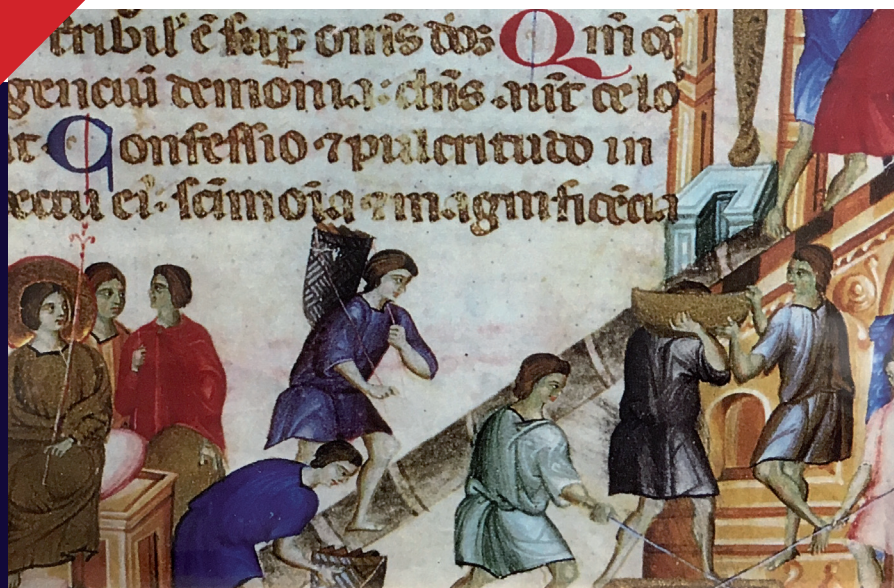 tribil' ē sup om̄s dos Qm̄ oē
genciū demonia: dn̄s aūt celo
it Confessio ⁊ pulcritudo in
ectu ei'. scīmoīa ⁊ magnificēcia